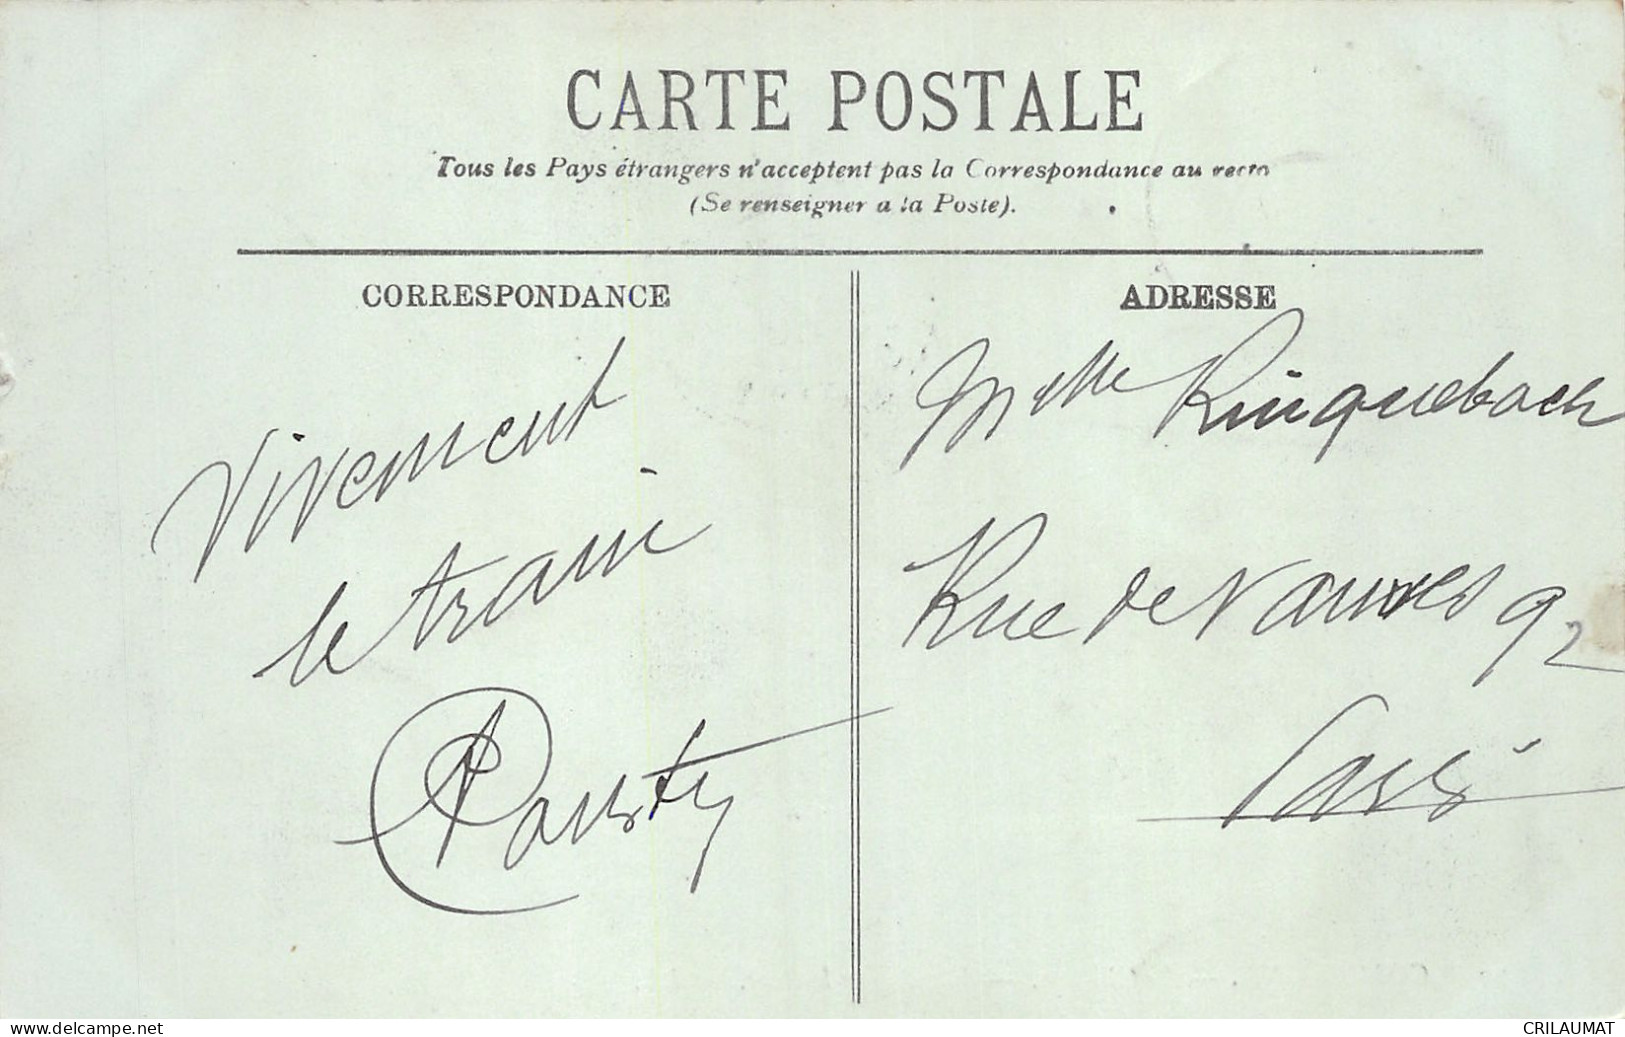 CARTE POSTALE
Tous les Pays étrangers n'acceptent pas la Correspondance au recto
(Se renseigner a la Poste).
CORRESPONDANCE
ADRESSE
Vivement
le train
Melle Ringuebach
Rue de Vanves 92
Paris
www.delcampe.net
CRILAUMAT